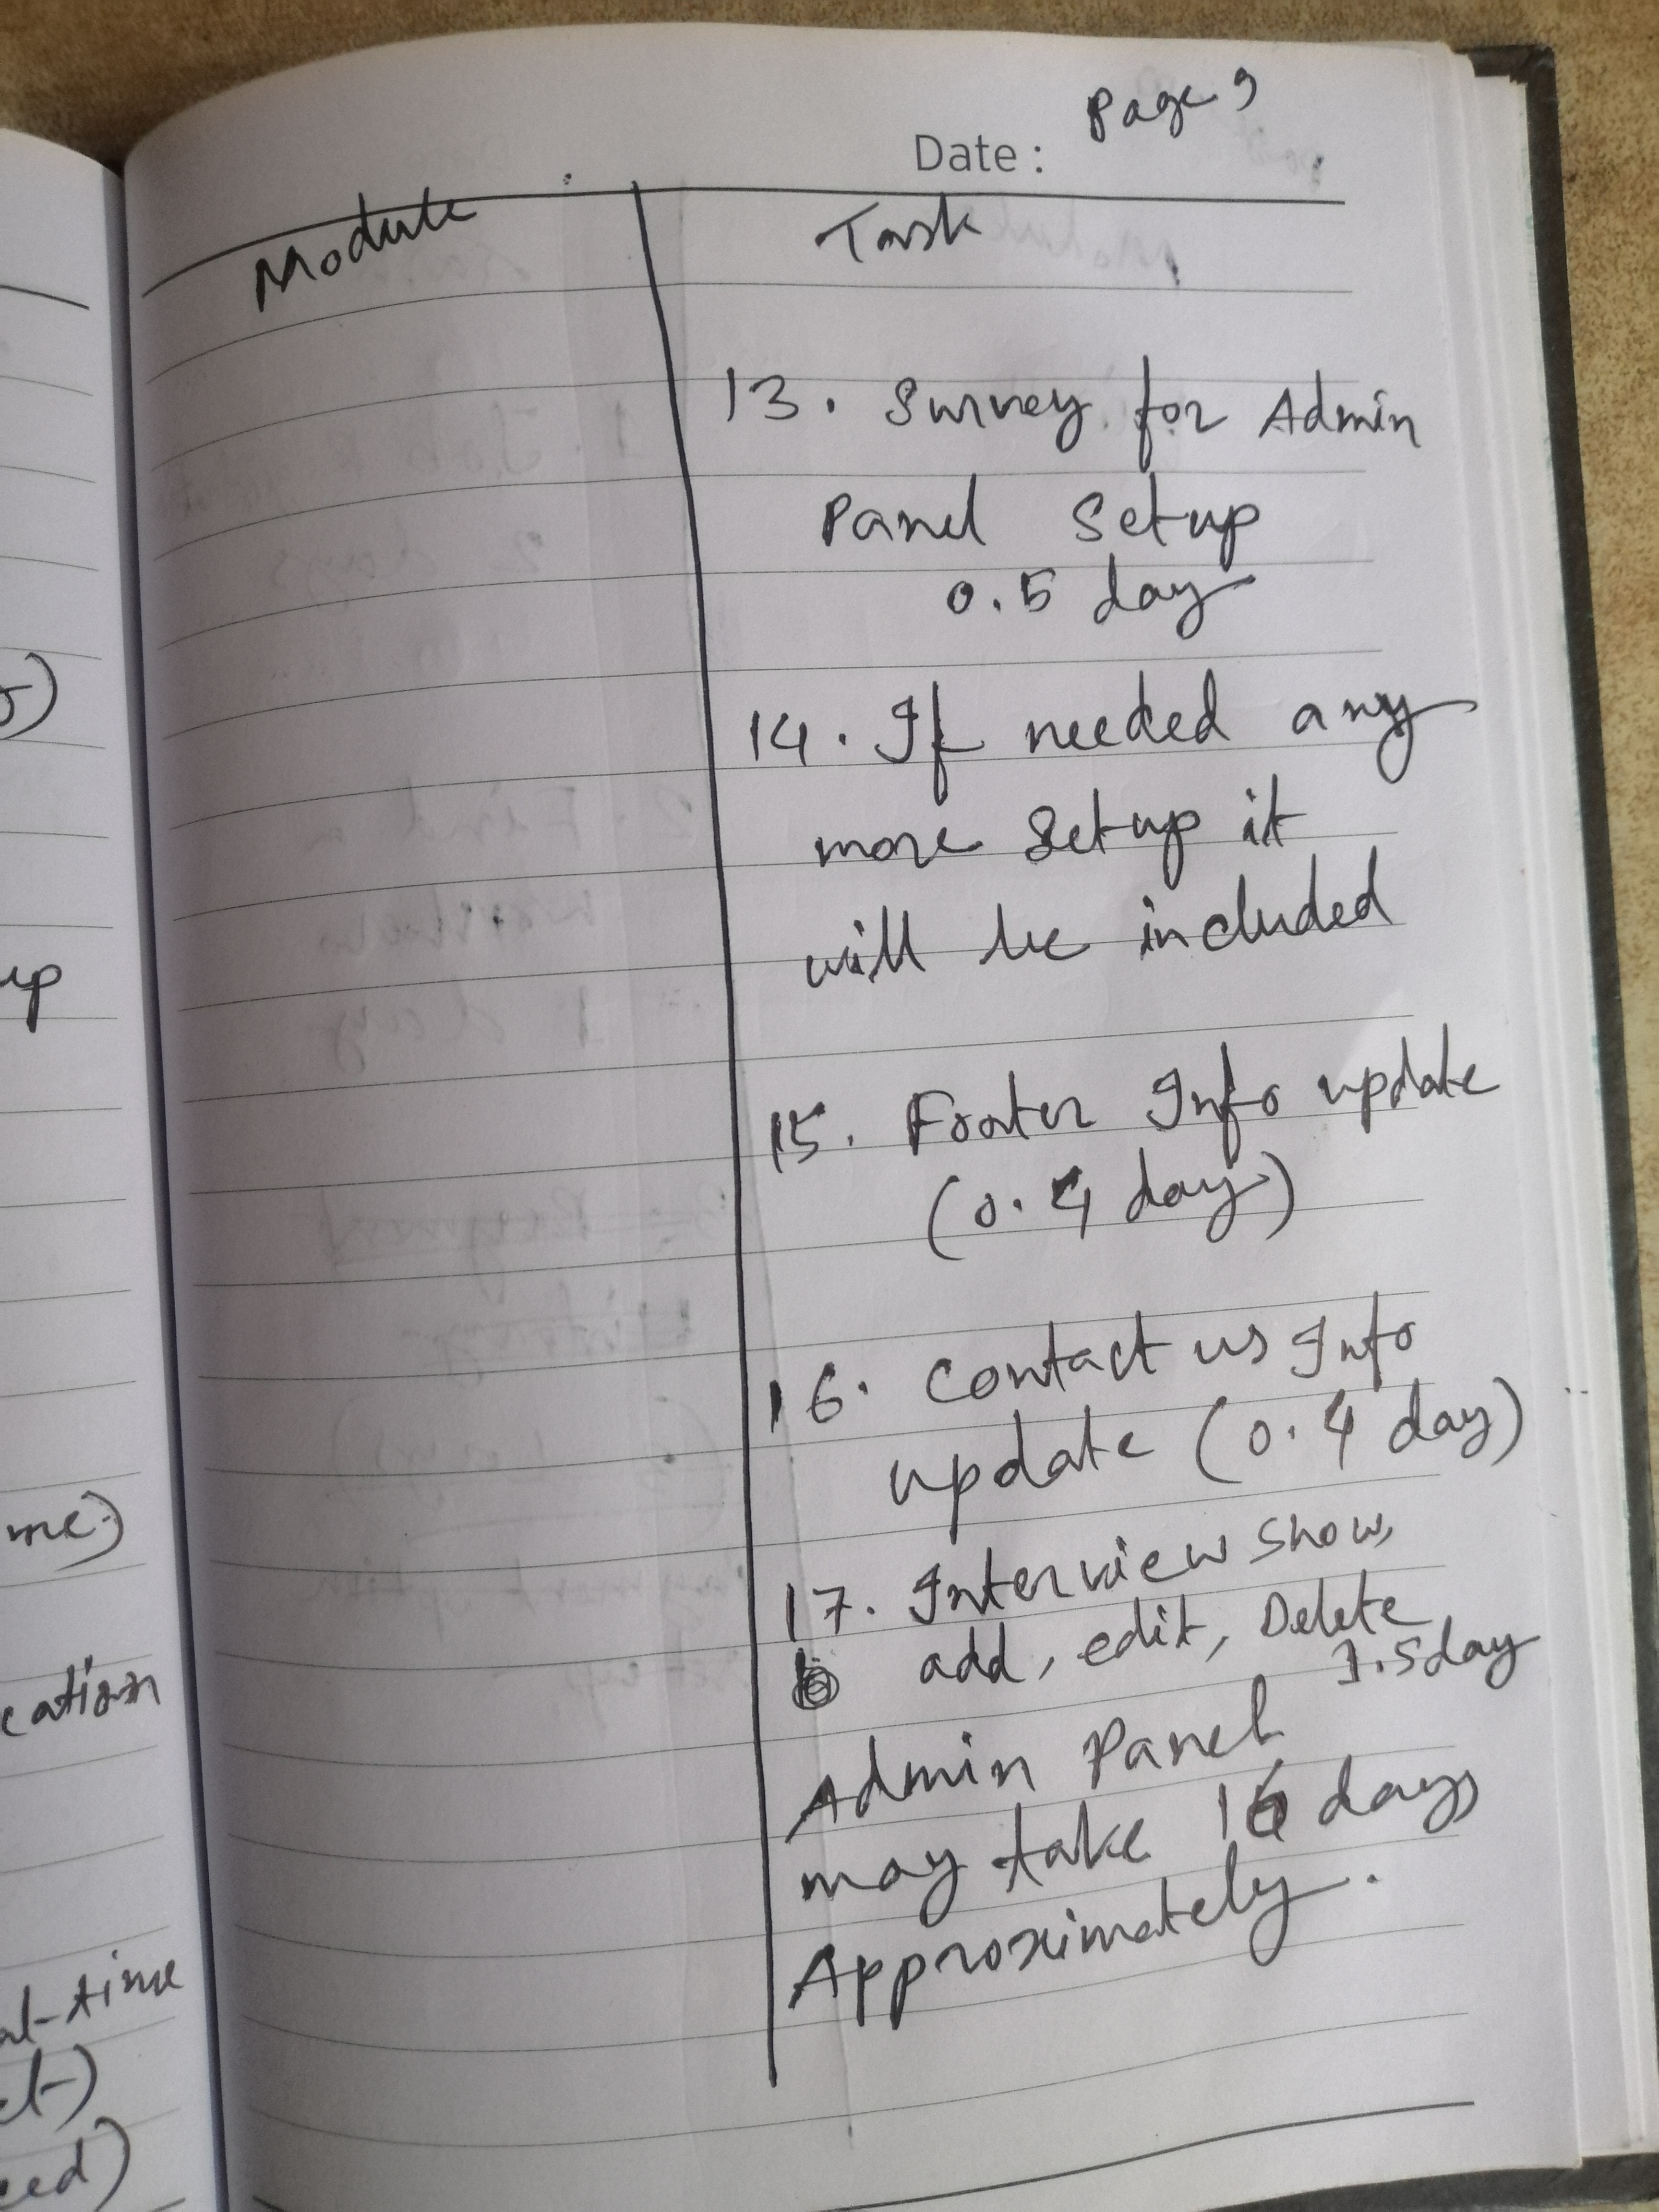 Page 9
Date :
Module
Task
13. Survey for Admin
Panel Setup
0.5 day
14. If needed any
more Setup it
will be included
15. Footer Info update
(0.4 day)
16. Contact us Info
update (0.4 day)
17. Interview show,
add, edit, Delete
1.5 day
Admin Panel
may take 16 days
Approximately.
up
me)
cation